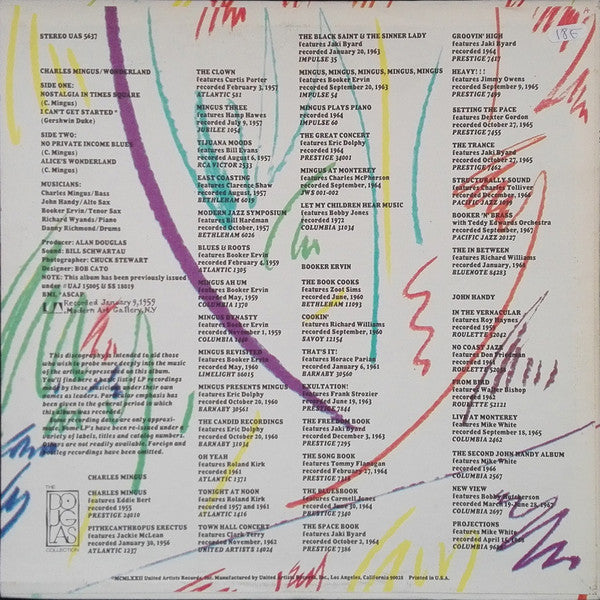 STEREO UAS 5637
CHARLES MINGUS/WONDERLAND
SIDE ONE:
NOSTALGIA IN TIMES SQUARE
(C. Mingus)
I CAN'T GET STARTED*
(Gershwin Duke)
SIDE TWO:
NO PRIVATE INCOME BLUES
(C. Mingus)
ALICE'S WONDERLAND
(C. Mingus)
MUSICIANS:
Charles Mingus/Bass
John Handy/Alto Sax
Booker Ervin/Tenor Sax
Richard Wyands/Piano
Danny Richmond/Drums
Producer: ALAN DOUGLAS
Sound: BILL SCHWARTAU
Photographer: CHUCK STEWART
Designer: BOB CATO
NOTE: This album has been previously issued
under #UAJ 15005 & SS 18019
BMI, *ASCAP
Recorded January 9, 1959
Modern Art Gallery, N.Y.
This discography is intended to aid those
who wish to probe more deeply into the music
of the artists presented in this album.
You'll find listings of LP recordings
by these musicians under their own
names as leaders. Particular emphasis has
been given to the general period in which
this album was recorded.
Recording dates are only approxi-
mate. Some LP's have been re-issued under a
variety of labels, titles and catalog numbers.
Others are not readily available. Foreign and
bootleg recordings have been omitted.
CHARLES MINGUS
CHARLES MINGUS
features Eddie Bert
recorded 1955
PRESTIGE 24010
PITHECANTHROPUS ERECTUS
features Jackie McLean
recorded January 30, 1956
ATLANTIC 1237
THE DOUGLAS COLLECTION
THE CLOWN
features Curtis Porter
recorded February 3, 1957
ATLANTIC
MINGUS THREE
features Hamp Hawes
recorded July 9, 1957
JUBILEE 1054
TIJUANA MOODS
features Bill Evans
recorded August 6, 1957
RCA VICTOR 2533
EAST COASTING
features Clarence Shaw
recorded August, 1957
BETHLEHEM 6019
MODERN JAZZ SYMPOSIUM
features Bill Hardman
recorded October, 1957
BETHLEHEM 6026
BLUES & ROOTS
features Booker Ervin
recorded February 4, 1959
ATLANTIC 1305
MINGUS AH UM
features Booker Ervin
recorded May, 1959
COLUMBIA 1370
MINGUS DYNASTY
features Booker Ervin
recorded November, 1959
COLUMBIA
MINGUS REVISITED
features Booker Ervin
recorded May, 1960
LIMELIGHT 86015
MINGUS PRESENTS MINGUS
features Eric Dolphy
recorded October 20, 1960
BARNABY 30561
THE CANDID RECORDINGS
features Eric Dolphy
recorded October 20, 1960
BARNABY 31034
OH YEAH
features Roland Kirk
recorded 1961
ATLANTIC 1377
TONIGHT AT NOON
features Roland Kirk
recorded 1957 and 1961
ATLANTIC
TOWN HALL CONCERT
features Clark Terry
recorded November, 1962
UNITED ARTISTS 14024
THE BLACK SAINT & THE SINNER LADY
features Jaki Byard
recorded January 20, 1963
IMPULSE 35
MINGUS, MINGUS, MINGUS, MINGUS, MINGUS
features Booker Ervin
recorded September 20, 1963
IMPULSE 54
MINGUS PLAYS PIANO
recorded 1964
IMPULSE 60
THE GREAT CONCERT
features Eric Dolphy
recorded April, 1964
PRESTIGE 34001
MINGUS AT MONTEREY
features Charles McPherson
recorded September, 1964
JWS 001-4002
LET MY CHILDREN HEAR MUSIC
features Bobby Jones
recorded 1972
COLUMBIA 31034
BOOKER ERVIN
THE BOOK COOKS
features Zoot Sims
recorded June, 1960
BETHLEHEM
COOKIN'
features Richard Williams
recorded September, 1960
SAVOY 12154
THAT'S IT!
features Horace Parlan
recorded January 6, 1961
BARNABY 30560
EXULTATION!
features Frank Strozier
recorded June 19, 1963
PRESTIGE 7844
THE FREEDOM
features Jaki Byard
recorded December 3, 1963
PRESTIGE 7295
THE SONG BOOK
features Tommy Flanagan
recorded February 27, 1964
PRESTIGE
THE BLUES BOOK
features Carmell Jones
recorded June 30, 1964
PRESTIGE
THE SPACE BOOK
features Jaki Byard
recorded October 2, 1964
PRESTIGE 7386
GROOVIN' HIGH
features Jaki Byard
recorded 1964
PRESTIGE 7417
HEAVY!!!
features Jimmy Owens
recorded September 9, 1965
PRESTIGE 7499
SETTING THE PACE
features Dexter Gordon
recorded October 27, 1965
PRESTIGE 7455
THE TRANCE
features Jaki Byard
recorded October 27, 1965
PRESTIGE 7462
STRUCTURALLY SOUND
features Charles Tolliver
recorded December,
PACIFIC JAZZ
BOOKER 'N' BRASS
with Teddy Edwards Orchestra
recorded September, 1967
PACIFIC JAZZ 20127
THE IN BETWEEN
features Richard Williams
recorded January, 1968
BLUENOTE 84283
JOHN HANDY
IN THE VERNACULAR
features Roy Haynes
recorded
ROULETTE
NO COAST JAZZ
features Don Friedman
recorded
ROULETTE
FROM BIRD
features Walter Bishop
recorded 1962
ROULETTE 52121
LIVE AT MONTEREY
features Mike White
recorded September 18, 1965
COLUMBIA 2462
THE SECOND JOHN HANDY ALBUM
features Mike White
recorded 1966
COLUMBIA 2567
NEW VIEW
features Bobby Hutcherson
recorded March-June 28, 1967
COLUMBIA 2697
PROJECTIONS
features Mike White
recorded April 15, 1968
COLUMBIA
18€
℗MCMLXXII United Artists Records, Inc. Manufactured by United Artists Records, Inc., Los Angeles, California 90028 Printed in U.S.A.